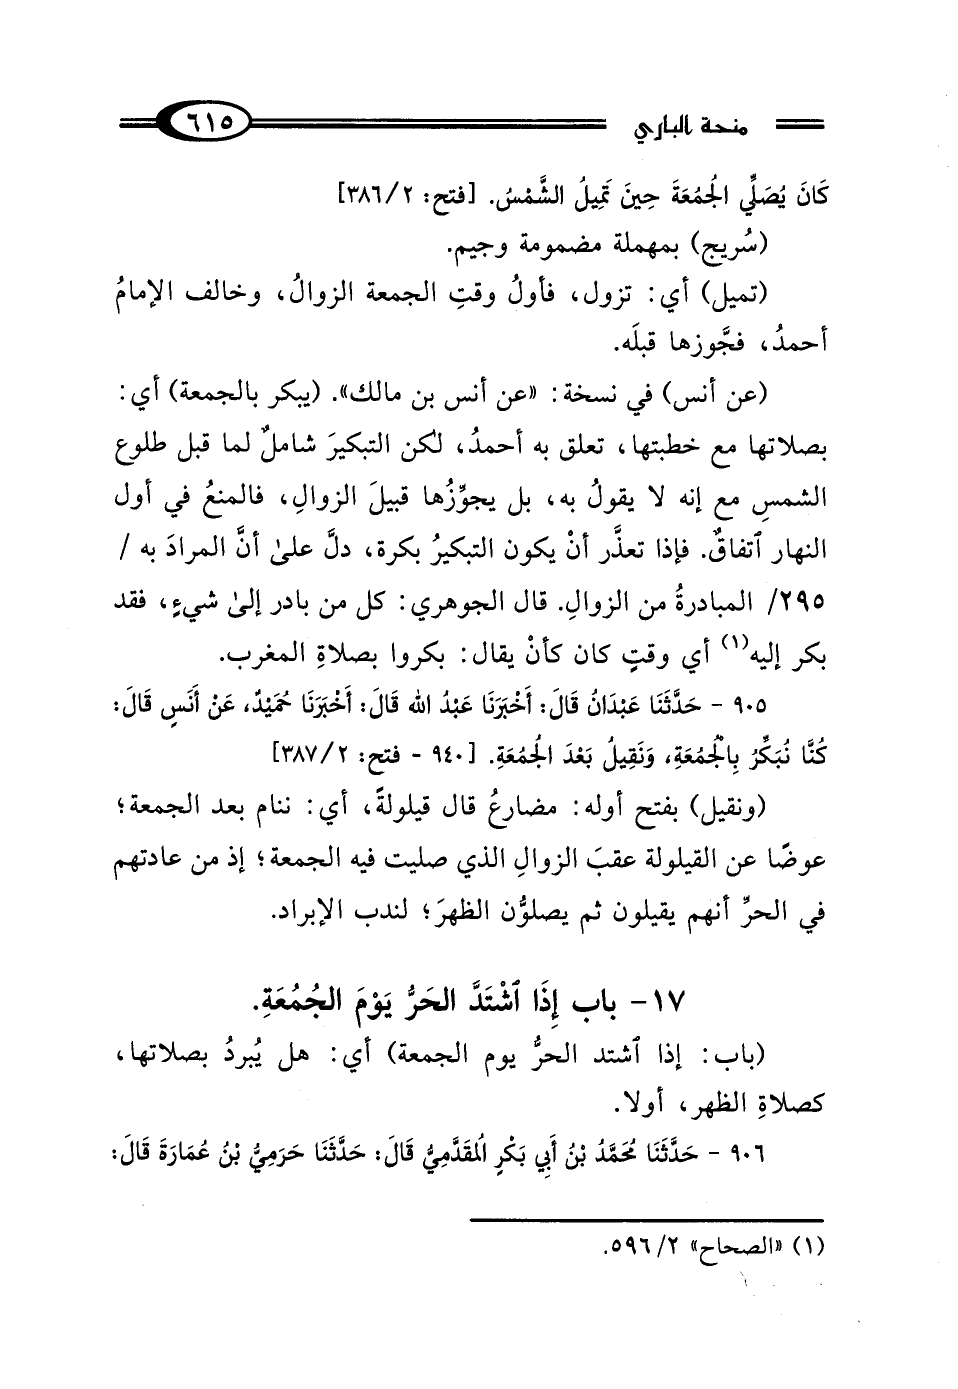 منحة الباري ٦١٥
كَانَ يُصَلِّي الجُمُعَةَ حِينَ تَمِيلُ الشَّمْسُ. [فتح: ٣٨٦/٢]
(سُريج) بمهملة مضمومة وجيم.
(تميل) أي: تزول، فأولُ وقتِ الجمعة الزوالُ، وخالف الإمامُ
أحمدُ، فجَّوزها قبلَه.
(عن أنس) في نسخة: «عن أنس بن مالك». (يبكر بالجمعة) أي:
بصلاتها مع خطبتها، تعلق به أحمدُ، لكن التبكيرَ شاملٌ لما قبل طلوع
الشمسِ مع إنه لا يقولُ به، بل يجوِّزُها قبيلَ الزوالِ، فالمنعُ في أول
النهار ٱتفاقٌ. فإذا تعذَّر أنْ يكون التبكيرُ بكرة، دلَّ علىٰ أنَّ المرادَ به /
٢٩٥/ المبادرةُ من الزوالِ. قال الجوهري: كل من بادر إلىٰ شيءٍ، فقد
بكر إليه(١) أي وقتٍ كان كأنْ يقال: بكروا بصلاةِ المغرب.
٩٠٥ - حَدَّثَنَا عَبْدَانُ قَالَ: أَخْبَرَنَا عَبْدُ الله قَالَ: أَخْبَرَنَا حُمَيْدٌ، عَنْ أَنَسٍ قَالَ:
كُنَّا نُبَكِّرُ بِالْجُمُعَةِ، وَنَقِيلُ بَعْدَ الجُمُعَةِ. [٩٤٠ - فتح: ٣٨٧/٢]
(ونقيل) بفتح أوله: مضارعُ قال قيلولةً، أي: ننام بعد الجمعة؛
عوضًا عن القيلولة عقبَ الزوالِ الذي صليت فيه الجمعة؛ إذ من عادتهم
في الحرِّ أنهم يقيلون ثم يصلوُّن الظهرَ؛ لندب الإبراد.
١٧- باب إِذَا ٱشْتَدَّ الحَرُّ يَوْمَ الجُمُعَةِ.
(باب: إذا ٱشتد الحرُّ يوم الجمعة) أي: هل يُبردُ بصلاتها،
كصلاةِ الظهر، أولا.
٩٠٦ - حَدَّثَنَا مُحَمَّدُ بْنُ أَبِي بَكْرٍ المُقَدَّمِيُّ قَالَ: حَدَّثَنَا حَرَمِيُّ بْنُ عُمَارَةَ قَالَ:
(١) «الصحاح» ٥٩٦/٢.